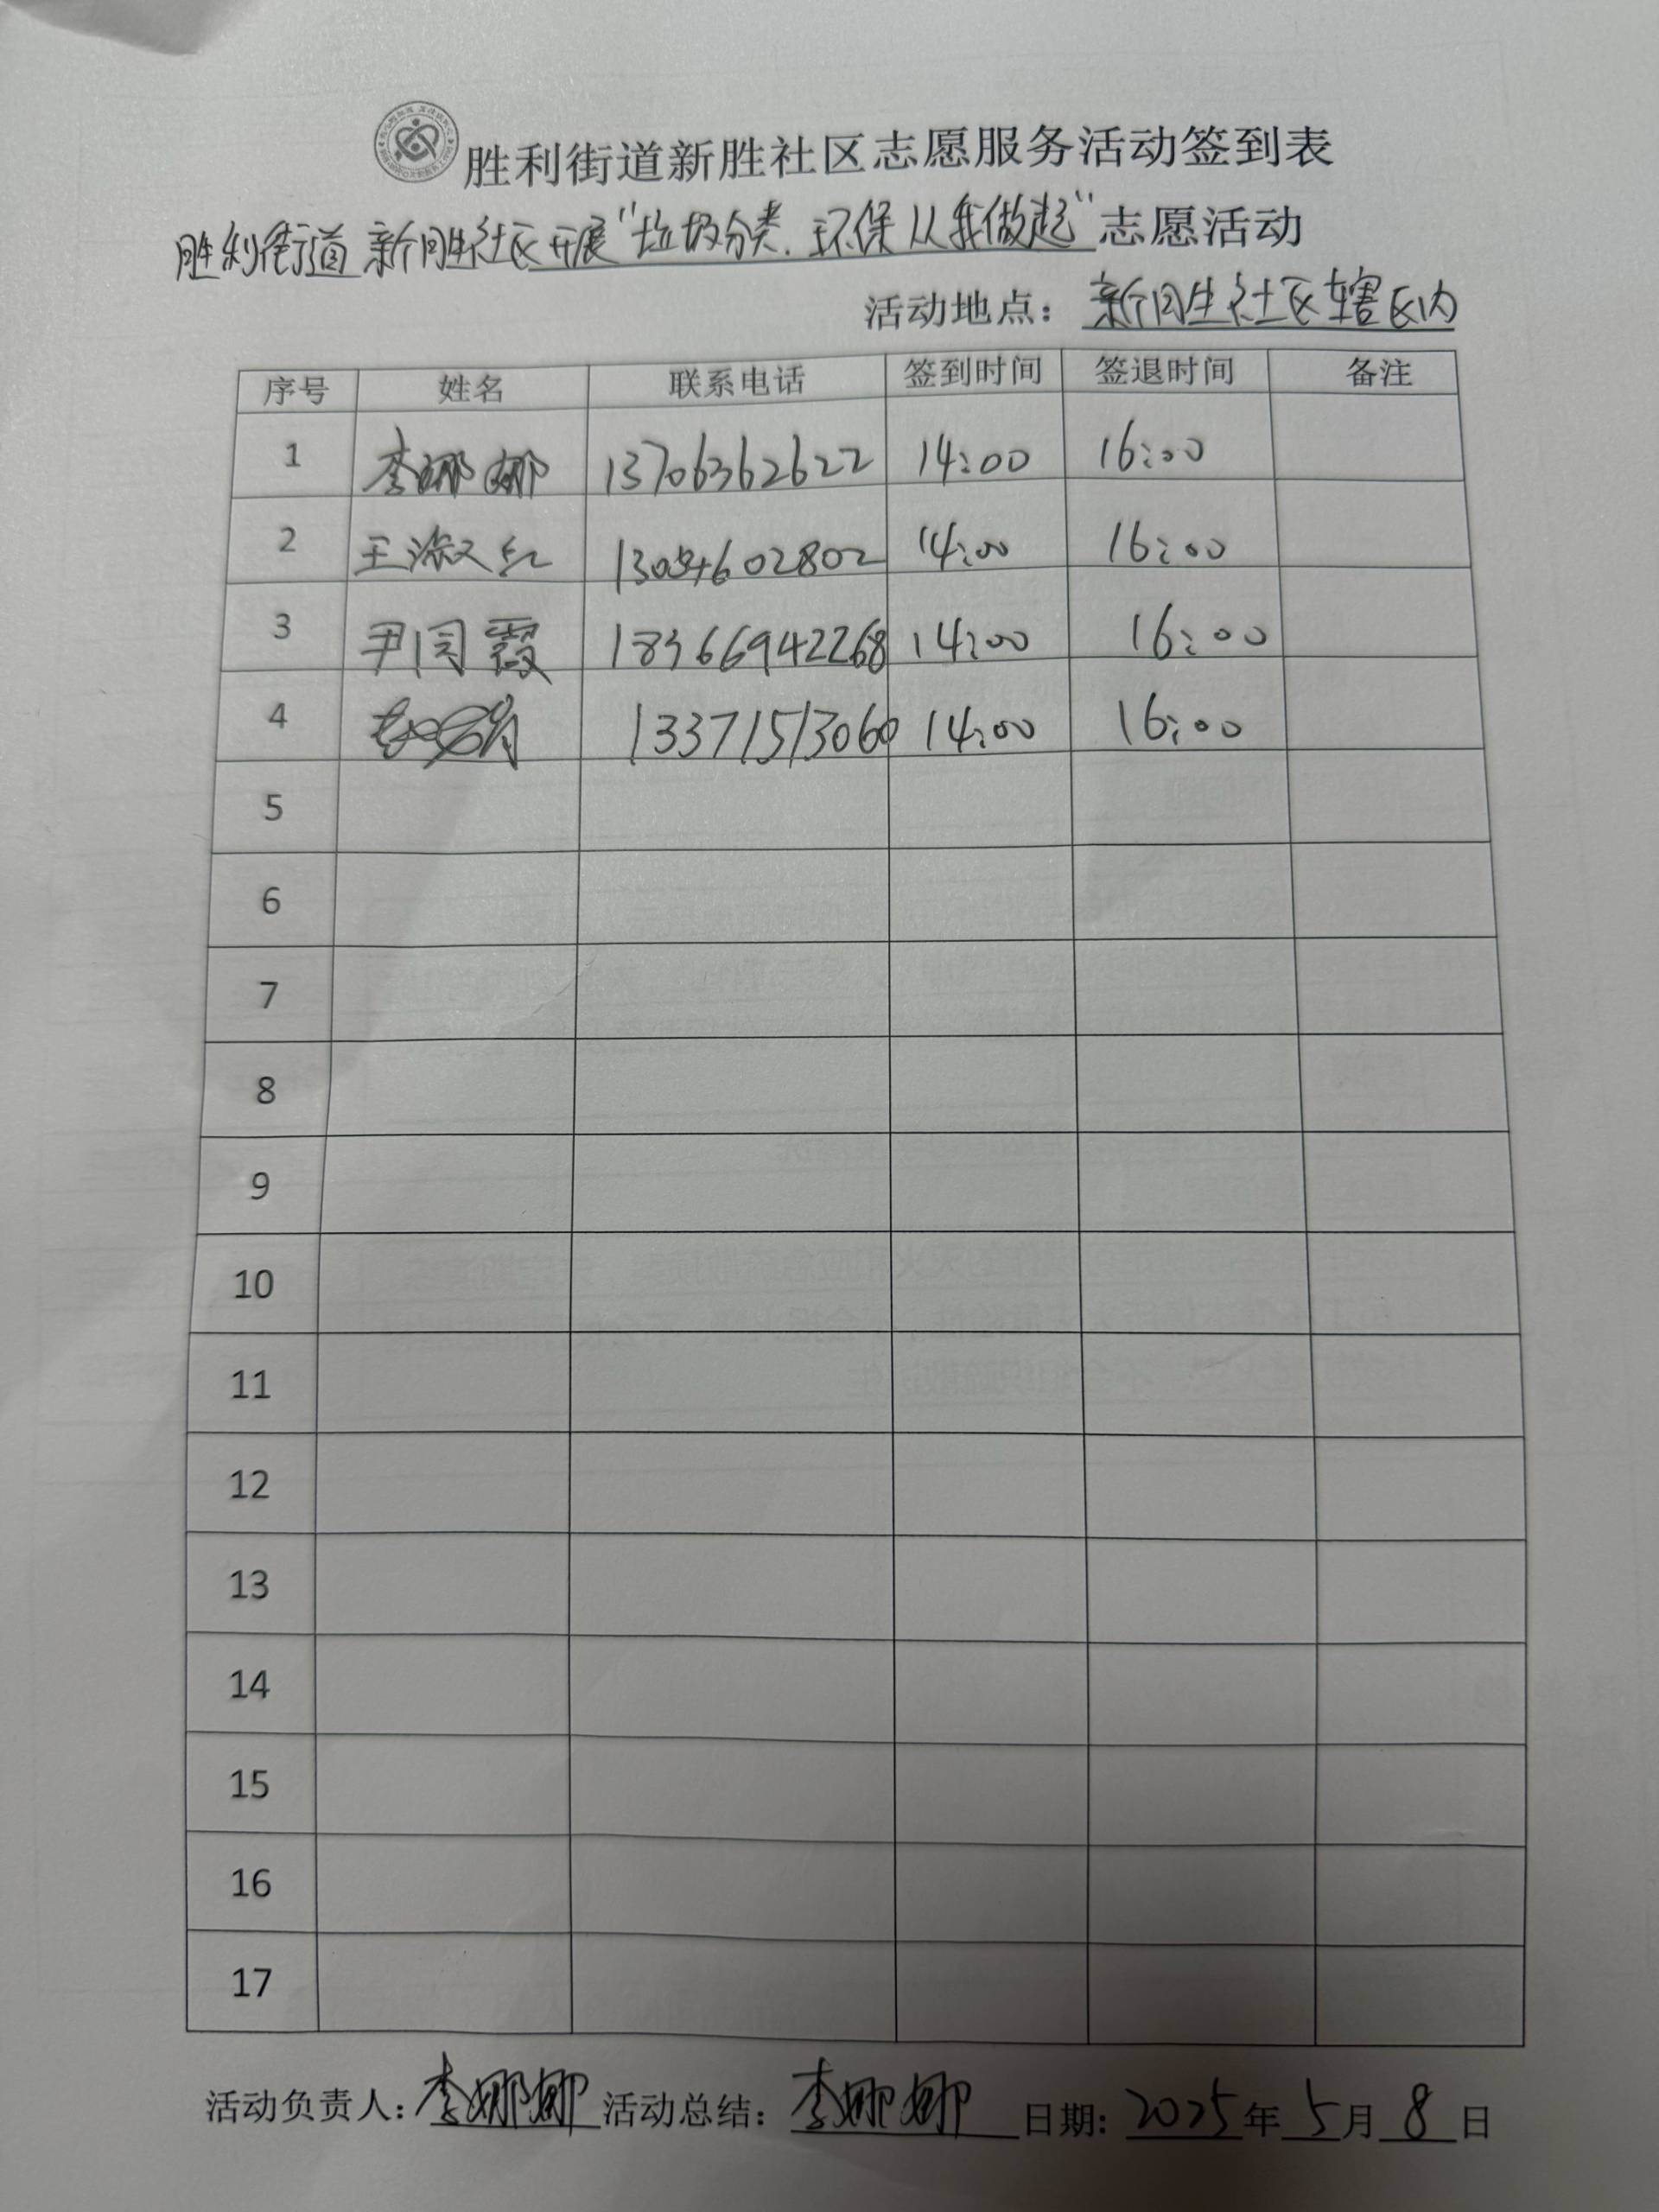 胜利街道新胜社区志愿服务活动签到表
胜利街道新胜社区开展"垃圾分类.环保从我做起"志愿活动
活动地点：新胜社区辖区内
序号 姓名 联系电话 签到时间 签退时间 备注
1 李娜娜 13706362622 14:00 16:00
2 王淑红 14:00 16:00
3 尹国霞 18366942268 14:00 16:00
4 13371513060 14:00 16:00
5
6
7
8
9
10
11
12
13
14
15
16
17
活动负责人：李娜娜 活动总结：李娜娜 日期：2025年5月8日